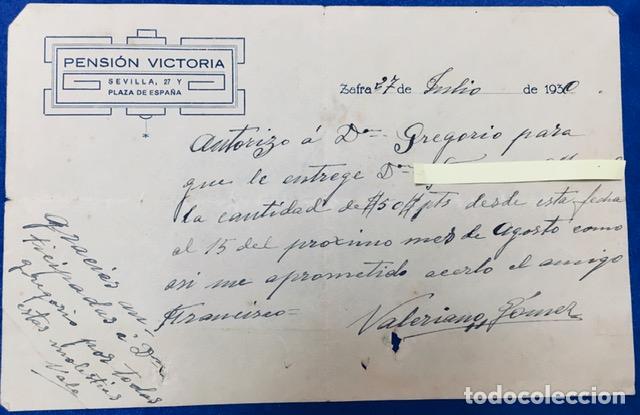 PENSIÓN VICTORIA
SEVILLA, 27 Y
PLAZA DE ESPAÑA
Zafra 27 de Julio de 1930.
Autorizo á Dn Gregorio para
que le entrege Dn
la cantidad de #50#pts desde esta fecha
al 15 del proximo mes de Agosto como
asi me aprometido acerlo el amigo
Francisco=
Valeriano Gómez
Gracias an-
ticipadas á Dn
gregorio por todas
estas molestias
Vale
todocoleccion
todocoleccion.net